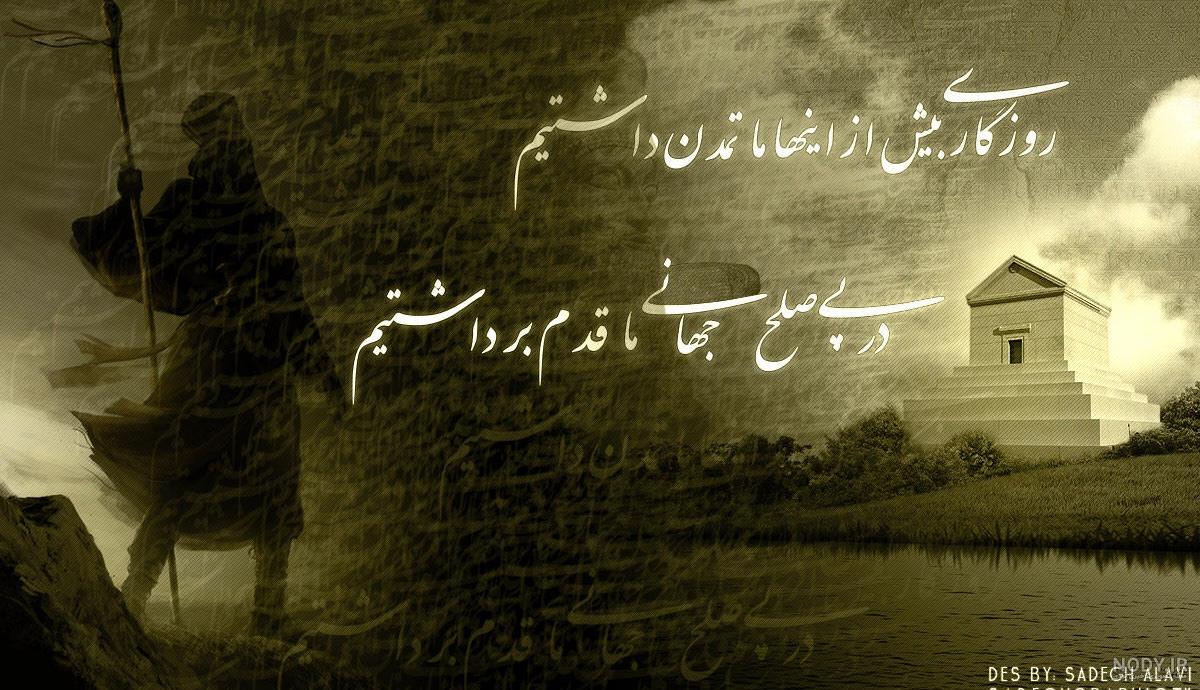 روزگاری بیش از اینها ما تمدن داشتیم
در پی صلح جهانی ما قدم برداشتیم
DES BY: SADEGH ALAVI
NODY.IR